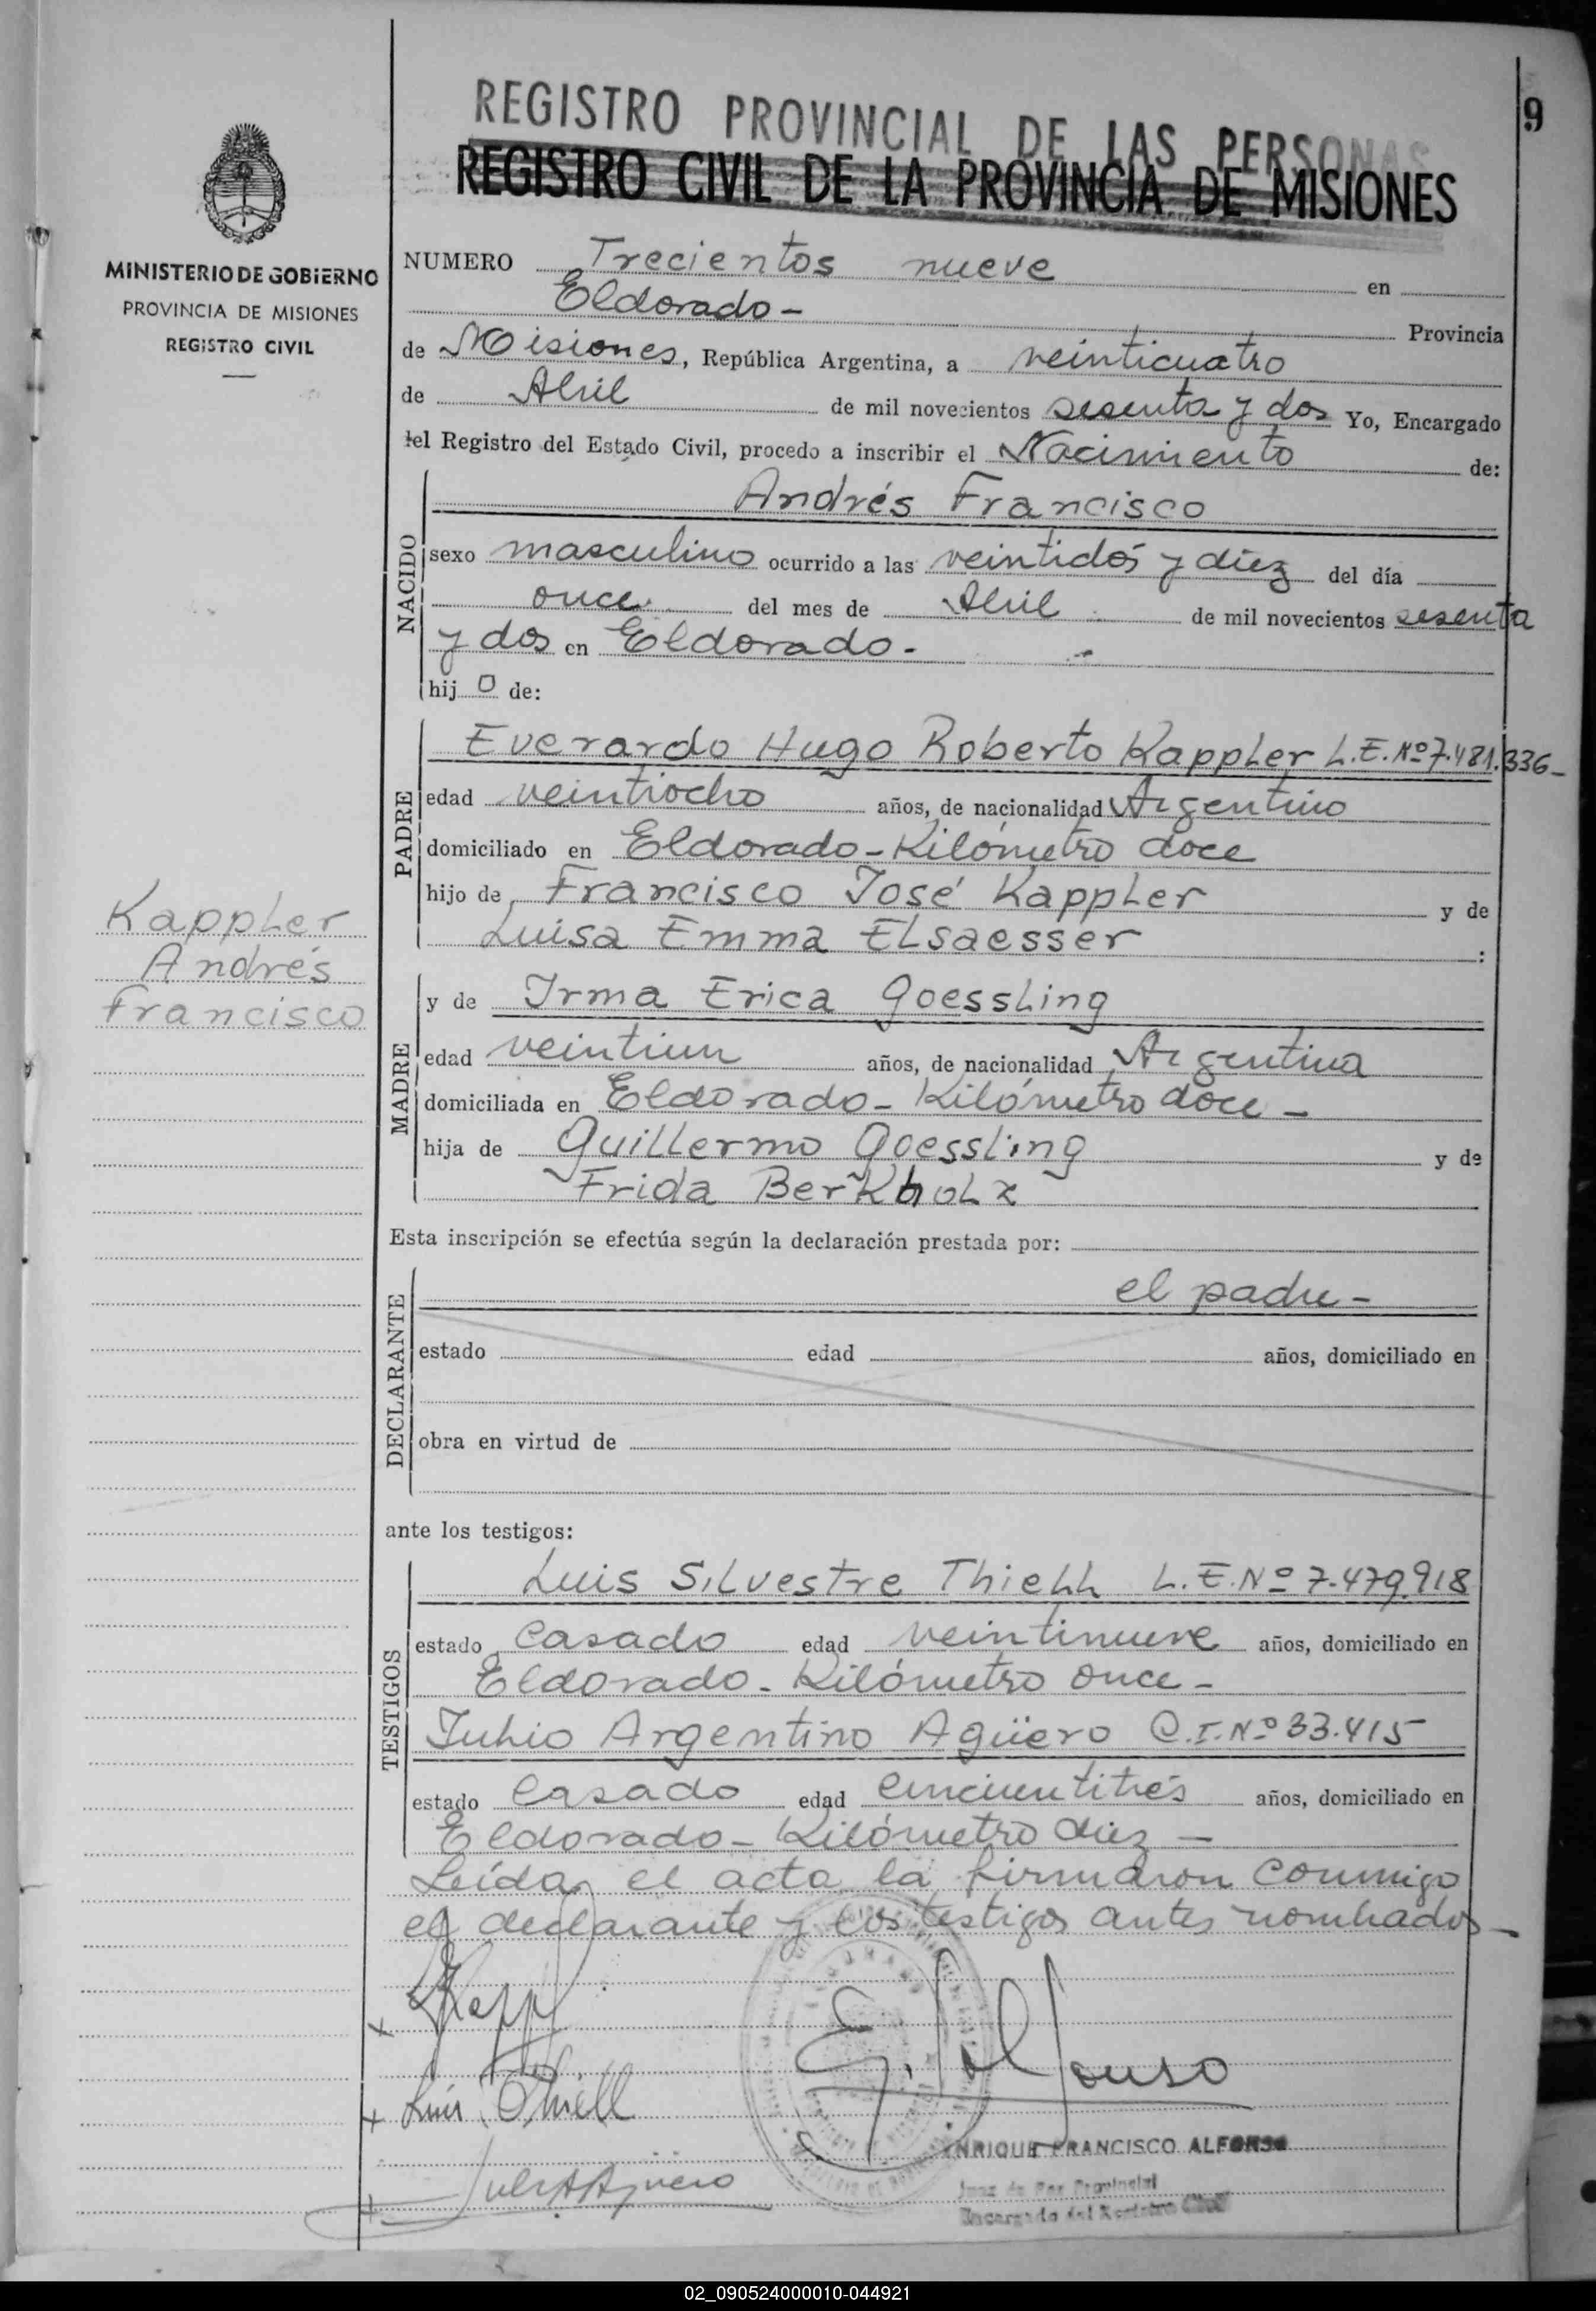 9
REGISTRO PROVINCIAL DE LAS PERSONAS
REGISTRO CIVIL DE LA PROVINCIA DE MISIONES
MINISTERIO DE GOBIERNO
PROVINCIA DE MISIONES
REGISTRO CIVIL
NUMERO Trecientos nueve en
Eldorado - Provincia
de Misiones, República Argentina, a veinticuatro
de Abril de mil novecientos sesenta y dos Yo, Encargado
del Registro del Estado Civil, procedo a inscribir el Nacimiento de:
NACIDO
Andrés Francisco
sexo masculino ocurrido a las veintidós y diez del día
once del mes de Abril de mil novecientos sesenta
y dos en Eldorado.-
hijo de:
PADRE
Everardo Hugo Roberto Kappler L.E.Nº7.481.336-
edad veintiocho años, de nacionalidad Argentino
domiciliado en Eldorado-Kilómetro doce
hijo de Francisco José Kappler y de
Luisa Emma Elsaesser :
Kappler
Andrés
Francisco
MADRE
y de Irma Erica Goessling
edad veintiun años, de nacionalidad Argentina
domiciliada en Eldorado- Kilómetro doce -
hija de Guillermo Goessling y de
Frida Berkholz
Esta inscripción se efectúa según la declaración prestada por:
DECLARANTE
el padre-
estado edad años, domiciliado en
obra en virtud de
ante los testigos:
TESTIGOS
Luis Silvestre Thiell L.E.Nº 7.479.918
estado Casado edad veintinueve años, domiciliado en
Eldorado- Kilómetro once-
Julio Argentino Agüero C.I.Nº 33.415
estado Casado edad cincuentitrés años, domiciliado en
Eldorado- Kilómetro diez -
Leída el acta la firmaron conmigo
el declarante y los testigos antes nombrados-
E. Alfonso
Luis Thiell
ENRIQUE FRANCISCO ALFONSO
Juez de Paz Provincial
Encargado del Registro Civil
02_090524000010-044921